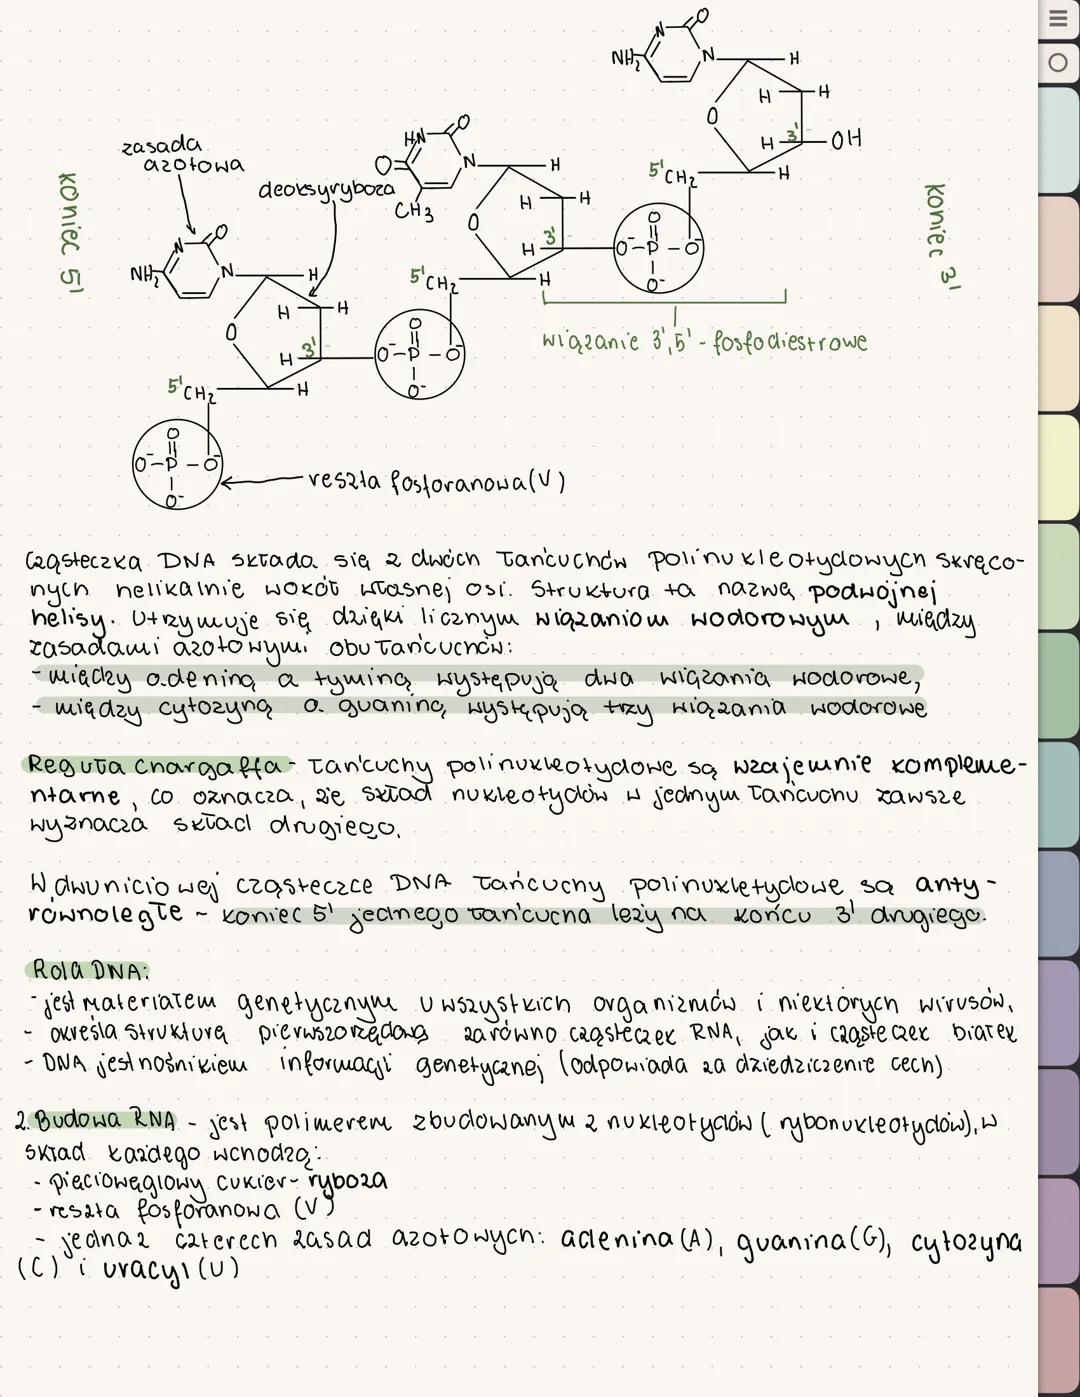 NH₂
N
O
N
H
O
H
H
H
3'
OH
5'CH₂
H
zasada
azotowa
deoksyryboza
HN
O
O
N
CH3
H
O
H
H
H
3'
5'CH₂
H
O
O⁻-P-O⁻
O⁻
koniec 5'
koniec 3'
wiązanie 3',5' - fosfodiestrowe
NH₂
N
O
N
H
O
H
H
H
3'
5'CH₂
H
O
O⁻-P-O⁻
O⁻
O
O⁻-P-O⁻
O⁻
reszta fosforanowa (V)
Cząsteczka DNA składa się z dwóch łańcuchów polinukleotydowych skręco-
nych helikalnie wokół własnej osi. Struktura ta nazwę podwójnej
helisy. Utrzymuje się dzięki licznym wiązaniom wodorowym, między
zasadami azotowymi obu łańcuchów:
- między adeniną a tyminą występują dwa wiązania wodorowe,
- między cytozyną a guaniną występują trzy wiązania wodorowe
Reguła Chargaffa - łańcuchy polinukleotydowe są wzajemnie kompleme-
ntarne, co oznacza, że skład nukleotydów w jednym łańcuchu zawsze
wyznacza skład drugiego.
W dwuniciowej cząsteczce DNA łańcuchy polinukletydowe są anty-
równoległe - koniec 5' jednego łańcucha leży na końcu 3' drugiego.
Rola DNA:
- jest materiałem genetycznym u wszystkich organizmów i niektórych wirusów,
- określa strukturę pierwszorzędową zarówno cząsteczek RNA, jak i cząsteczek białek
- DNA jest nośnikiem informacji genetycznej (odpowiada za dziedziczenie cech)
2. Budowa RNA - jest polimerem zbudowanym z nukleotydów (rybonukleotydów), w
skład każdego wchodzą:
- pięciowęglowy cukier - ryboza
- reszta fosforanowa (V)
- jedna z czterech zasad azotowych: adenina (A), guanina (G), cytozyna
(C) i uracyl (U)